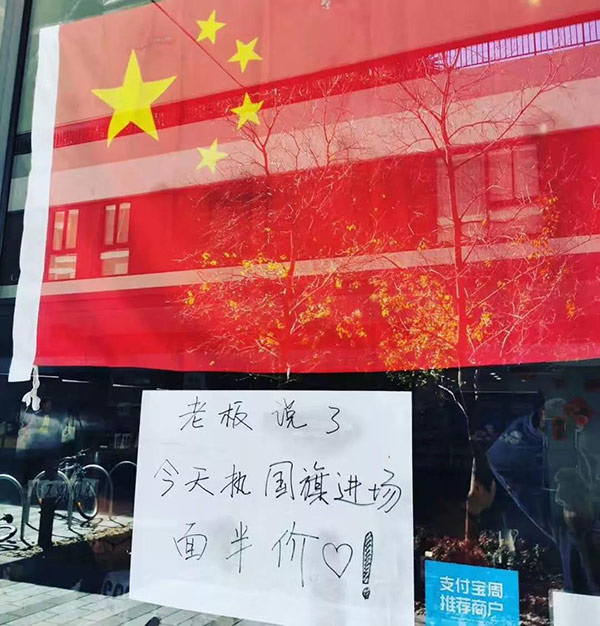 老板说了
今天执国旗进场
面半价♡!
支付宝周
推荐商户